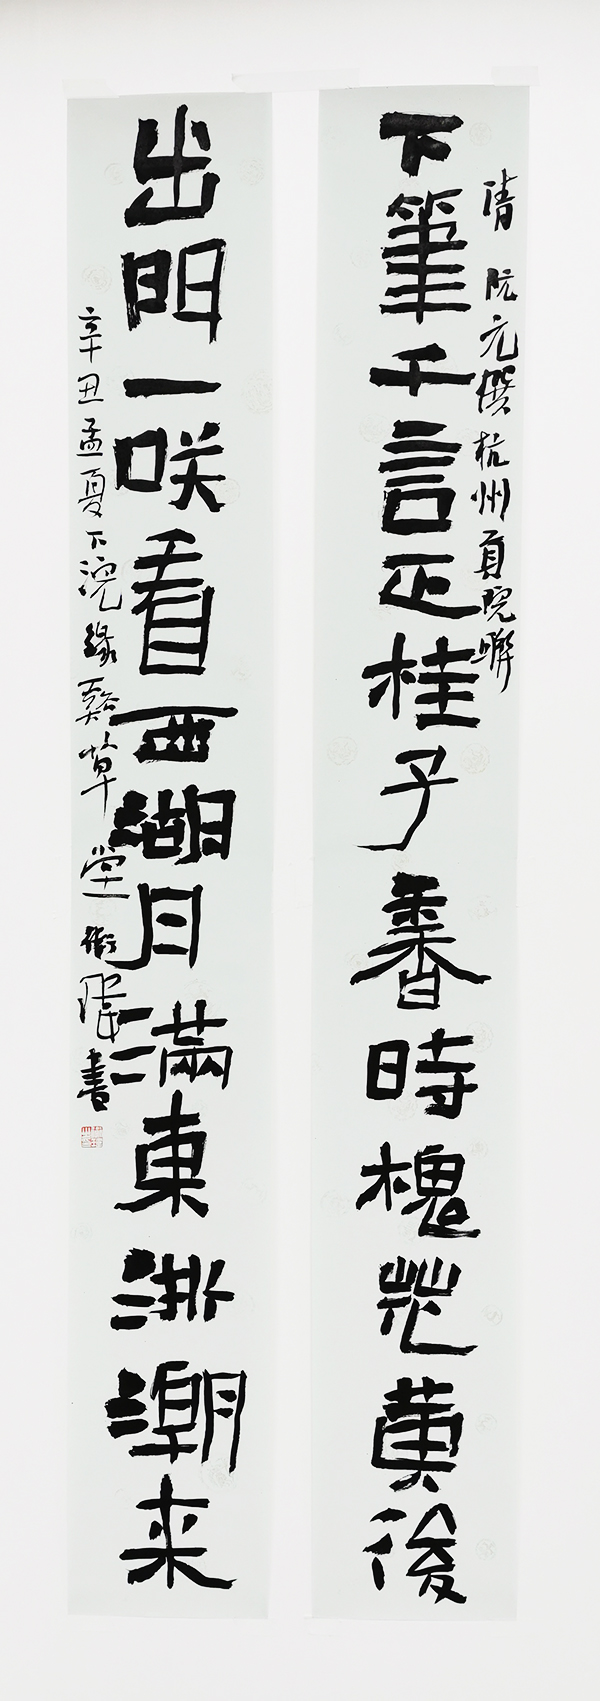 清 阮元撰杭州貢院聯
下筆千言正桂子香時槐花黄後
出門一咲看西湖月滿東浙潮来
辛丑孟夏下浣緣谿草堂書